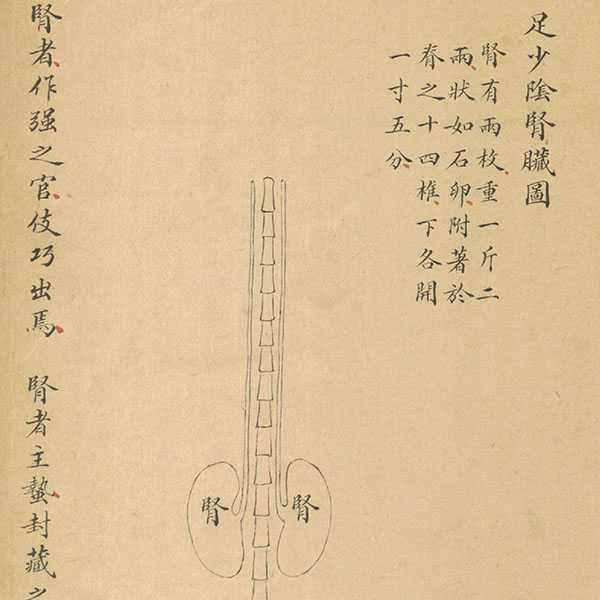 足少陰腎臟圖
腎有兩枚重一斤二
兩狀如石卵附著於
脊之十四椎下各開
一寸五分
腎
腎
腎者作强之官伎巧出焉 腎者主蟄封藏之